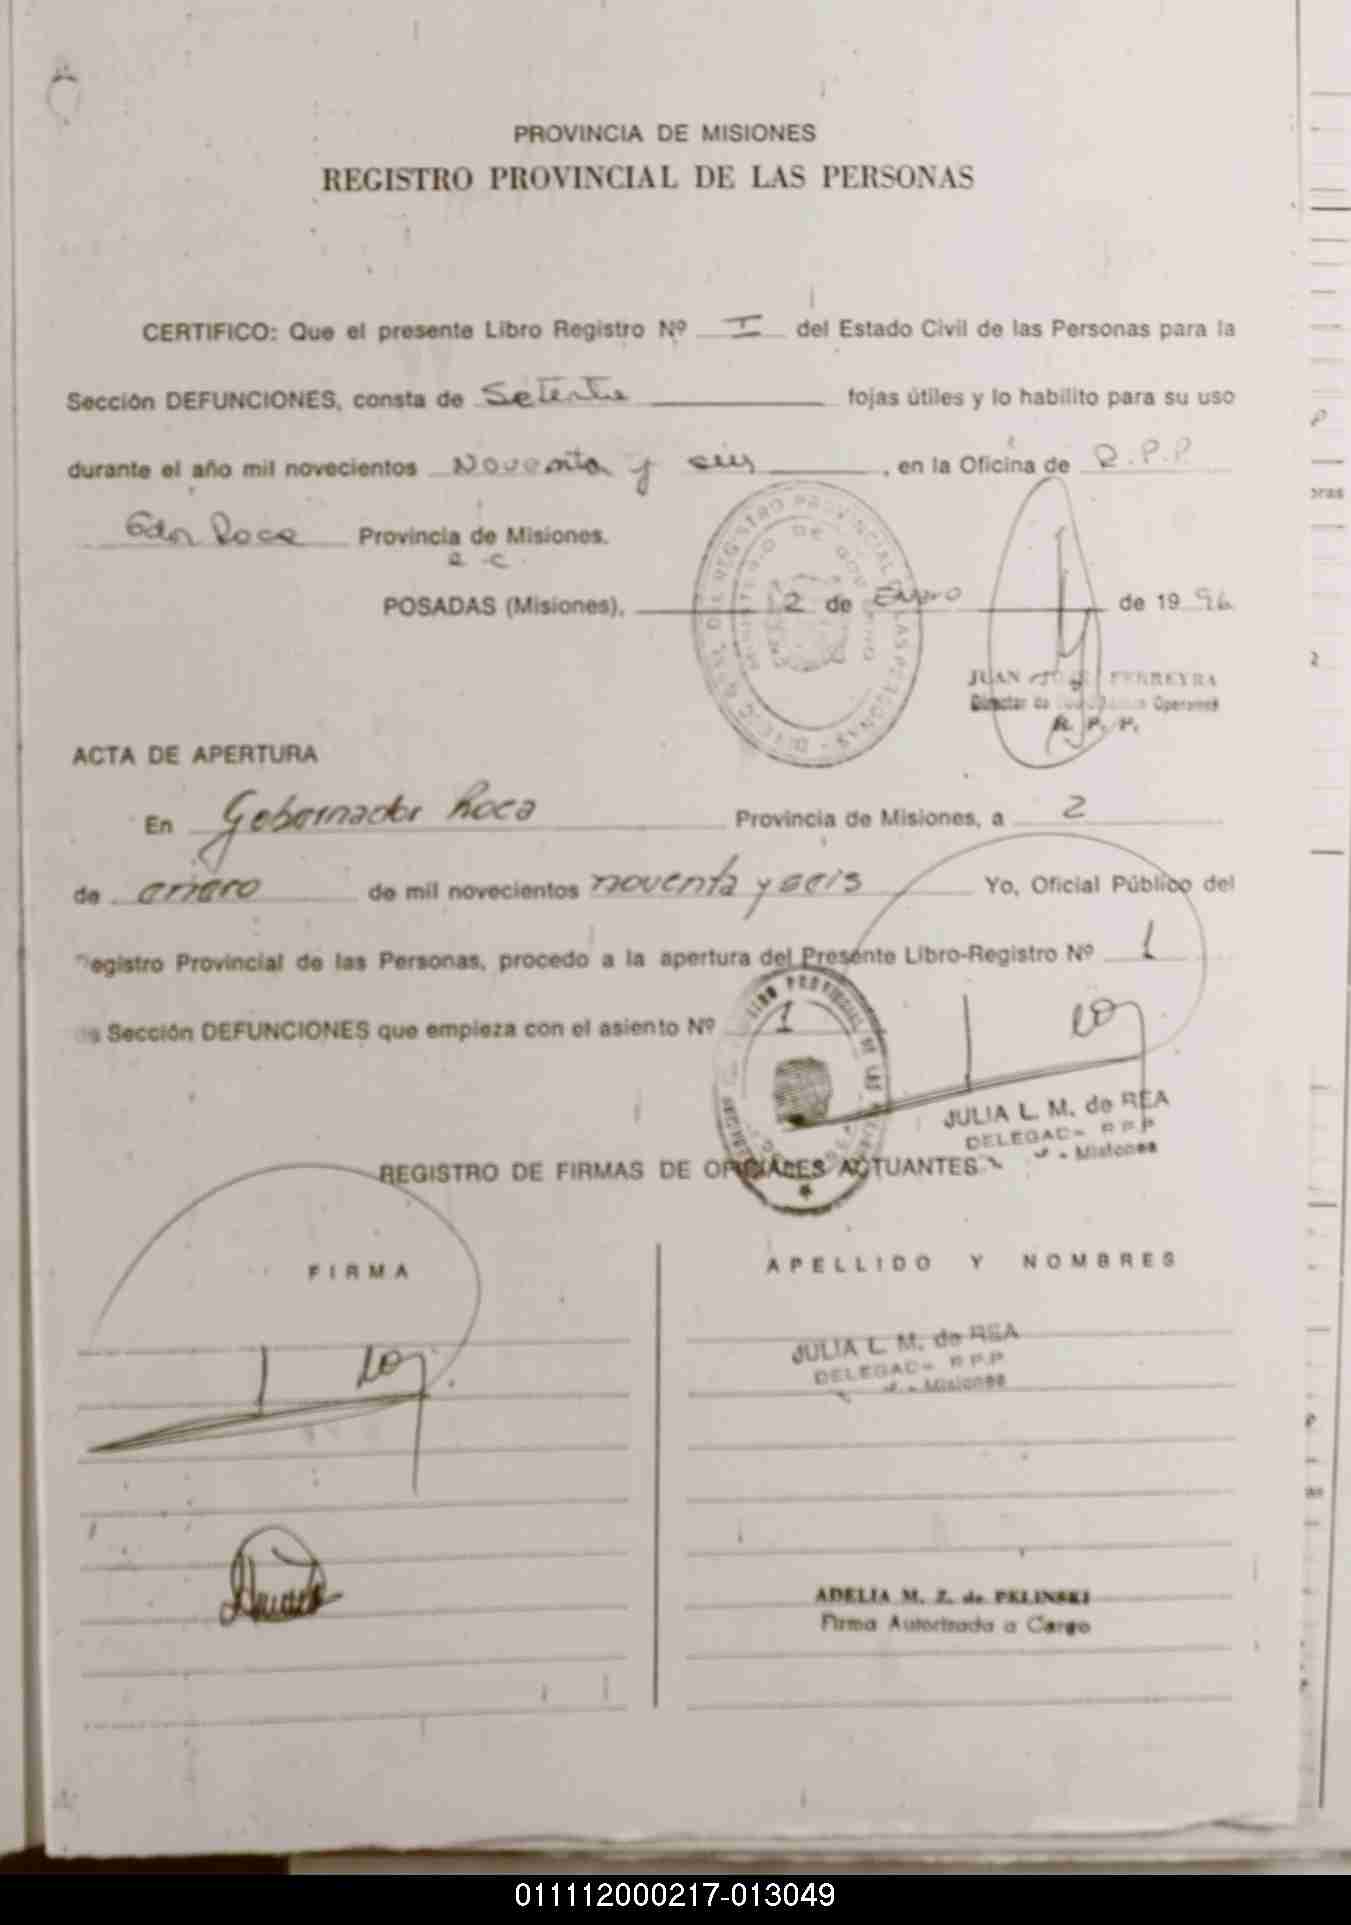 PROVINCIA DE MISIONES
REGISTRO PROVINCIAL DE LAS PERSONAS
CERTIFICO: Que el presente Libro Registro Nº I del Estado Civil de las Personas para la
Sección DEFUNCIONES, consta de Setenta fojas útiles y lo habilito para su uso
durante el año mil novecientos Noventa y seis, en la Oficina de R.P.P.
Gdor Roca Provincia de Misiones.
POSADAS (Misiones), 2 de Enero de 1996
JUAN JOSE FERREYRA
Director de Operativa
R. P. P.
ACTA DE APERTURA
En Gobernador Roca Provincia de Misiones, a 2
de enero de mil novecientos noventa y seis Yo, Oficial Público del
Registro Provincial de las Personas, procedo a la apertura del Presente Libro-Registro Nº 1
Sección DEFUNCIONES que empieza con el asiento Nº 1
JULIA L. M. de REA
DELEGAD R.P.P
Misiones
REGISTRO DE FIRMAS DE OFICIALES ACTUANTES
FIRMA
APELLIDO Y NOMBRES
JULIA L. M. de REA
DELEGAD R.P.P
Misiones
ADELIA M. Z. de PELINSKI
Firma Autorizada a Cargo
011112000217-013049